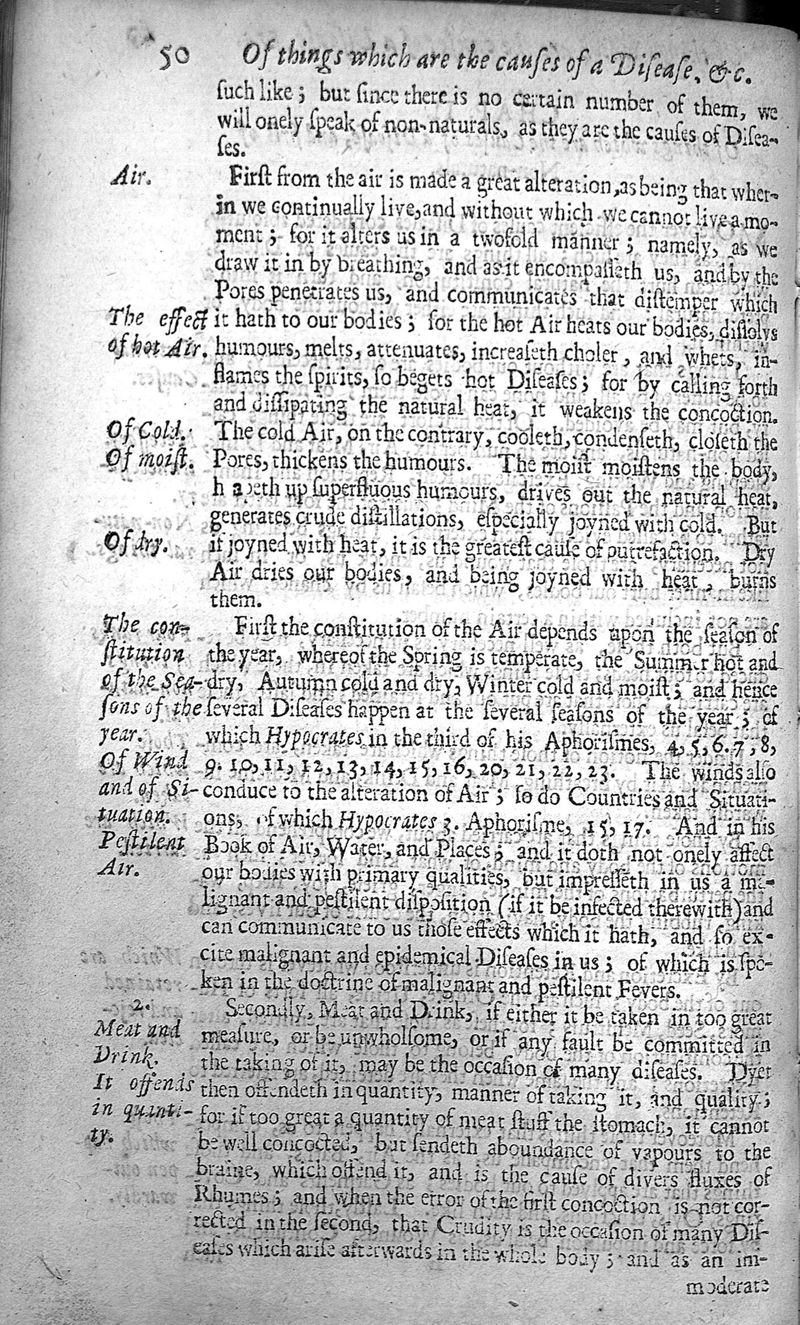 50 Of things which are the cauſes of a Diſeaſe, &c.
ſuch like; but ſince there is no certain number of them, we
will onely ſpeak of non-naturals, as they are the cauſes of Diſea-
ſes.
Air.
Firſt from the air is made a great alteration, as being that wher-
in we continually live, and without which we cannot live a mo-
ment; for it alters us in a twofold manner; namely, as we
draw it in by breathing, and as it encompaſſeth us, and by the
Pores penetrates us, and communicates that diſtemper which
The effect
of hot Air.
it hath to our bodies; for the hot Air heats our bodies, diſſolvs
humours, melts, attenuates, increaſeth choler, and whets, in-
flames the ſpirits, ſo begets hot Diſeaſes; for by calling forth
and diſſipating the natural heat, it weakens the concoction.
Of Cold.
Of moiſt.
The cold Air, on the contrary, cooleth, condenſeth, cloſeth the
Pores, thickens the humours. The moiſt moiſtens the body,
up ſuperfluous humours, drives out the natural heat,
generates crude diſtillations, eſpecially joyned with cold. But
Of dry.
if joyned with heat, it is the greateſt cauſe of putrefaction. Dry
Air dries our bodies, and being joyned with heat, burns
them.
The con-
ſtitution
of the Sea-
ſons of the
year.
Firſt the conſtitution of the Air depends upon the ſeaſon of
the year, whereof the Spring is temperate, the Summer hot and
dry, Autumn cold and dry, Winter cold and moiſt; and hence
ſeveral Diſeaſes happen at the ſeveral ſeaſons of the year; of
which Hypocrates in the third of his Aphoriſmes, 4, 5, 6. 7, 8,
Of Wind
and of Si-
tuation.
9. 10, 11, 12, 13, 14, 15, 16, 20, 21, 22, 23. The winds alſo
conduce to the alteration of Air; ſo do Countries and Situati-
ons, of which Hypocrates 3. Aphoriſme, 15, 17. And in his
Peſtilent
Air.
Book of Air, Water, and Places; and it doth not onely affect
our bodies with primary qualities, but impreſſeth in us a ma-
lignant and peſtilent diſpoſition (if it be infected therewith) and
can communicate to us thoſe effects which it hath, and ſo ex-
cite malignant and epidemical Diſeaſes in us; of which is ſpo-
ken in the doctrine of malignant and peſtilent Fevers.
2.
Meat and
Drink.
It offends
in quanti-
ty.
Secondly, Meat and Drink, if either it be taken in too great
meaſure, or be unwholſome, or if any fault be committed in
the taking of it, may be the occaſion of many diſeaſes. Dyet
then offendeth in quantity, manner of taking it, and quality;
for if too great a quantity of meat ſtuff the ſtomach, it cannot
be well concocted, but ſendeth aboundance of vapours to the
braine, which offend it, and is the cauſe of divers fluxes of
Rhumes; and when the error of the firſt concoction is not cor-
rected in the ſecond, that Crudity is the occaſion of many Diſ-
eaſes which ariſe afterwards in the whole body; and as an im-
moderate